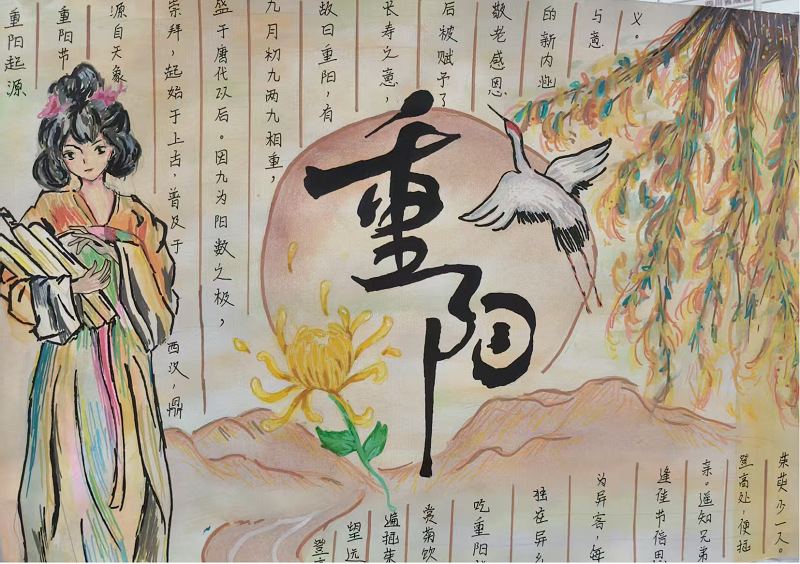 重阳起源
重阳节
源自天象
崇拜，起始于上古，普及于西汉，鼎
盛于唐代以后。因九为阳数之极，
九月初九两九相重，
故曰重阳，有
长寿之意，
后被赋予了
敬老感恩
的新内涵
与意
义。
重阳
登高
望远
遍插茱
赏菊饮
吃重阳
独在异乡
为异客，每
逢佳节倍思
亲。遥知兄弟
登高处，便插
茱萸少一人。